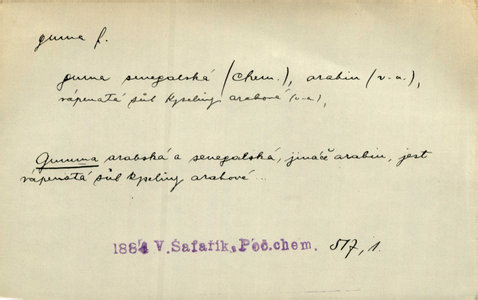 guma f.
guma senegalská (chem.), arabin (v.a.),
vápenatá sůl kyseliny arabové (v.a.),
Gumma arabská a senegalská, jináč arabin, jest
vápenatá sůl kyseliny arabové...
1884 V.Šafařík, Poč.chem. 517,1.